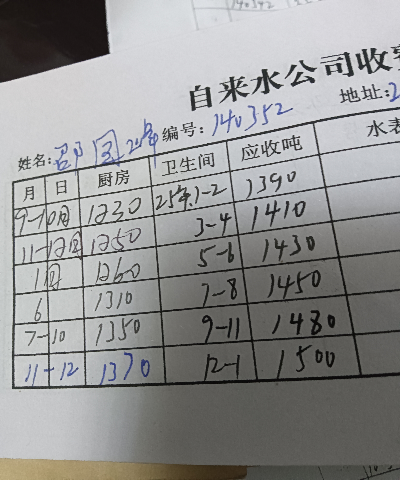 140342
自来水公司收费
姓名: 邵国 24年 编号: 140352 地址: 2
月 日 厨房 卫生间 应收吨 水表
9-10月 1230 25年.1-2 1390
11-12月 1250 3-4 1410
1月 1260 5-6 1430
6 1310 7-8 1450
7-10 1350 9-11 1480
11-12 1370 12-1 1500